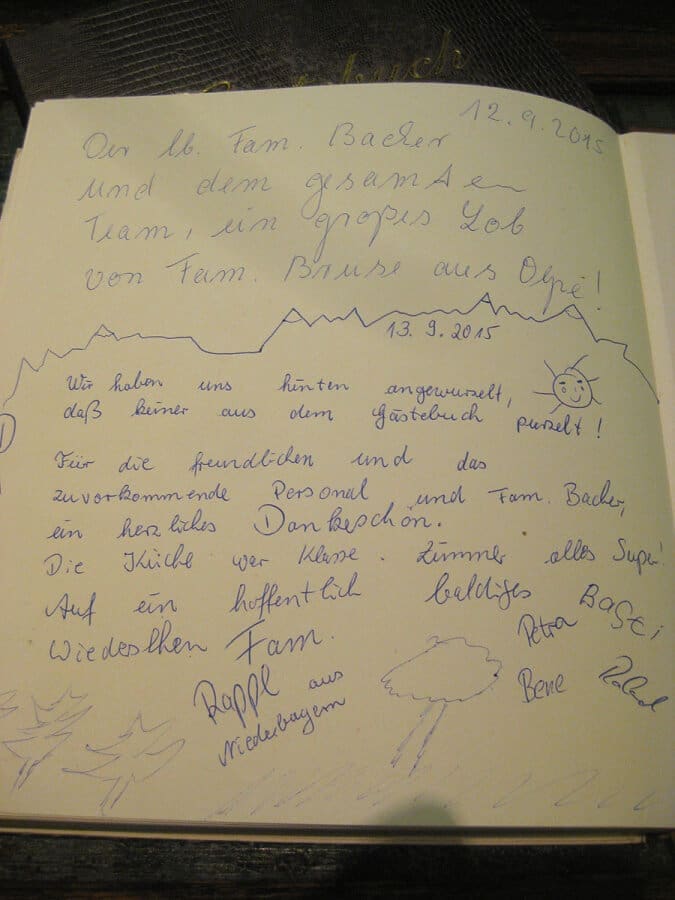 12.9.2015
Der lb. Fam. Bacher
und dem gesamten
Team, ein großes Lob
von Fam. Bruse aus Olpe!
13.9.2015
Wir haben uns hinten angewurzelt,
daß keiner aus dem Gästebuch purzelt!
Für die freundlichen und das
zuvorkommende Personal und Fam. Bacher,
ein herzliches Dankeschön.
Die Küche war Klasse. Zimmer alles Super!
Auf ein hoffentlich baldiges
Wiedersehen Fam.
Rappl aus
Niederbayern
Petra Basti
Bene Roland